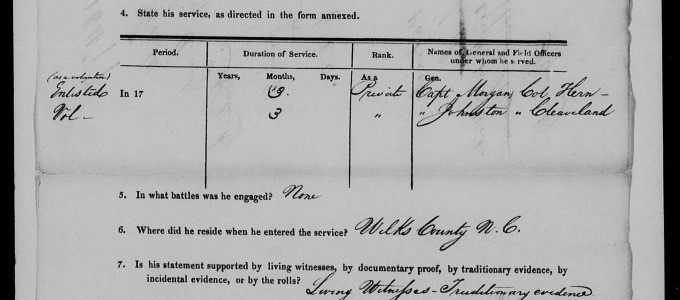 4. State his service, as directed in the form annexed.
Period. Duration of Service. Rank. Names of General and Field Officers
under whom he served.
Years, Months, Days. As a Gen.
(as a volunteer)
Enlisted In 17 Private Capt Morgan Col. Hern -
Vol - 3 " " Johnston " Cleaveland
5. In what battles was he engaged? None
6. Where did he reside when he entered the service? Wilks County N. C.
7. Is his statement supported by living witnesses, by documentary proof, by traditionary evidence, by
incidental evidence, or by the rolls? Living Witnesses - Traditionary evidence